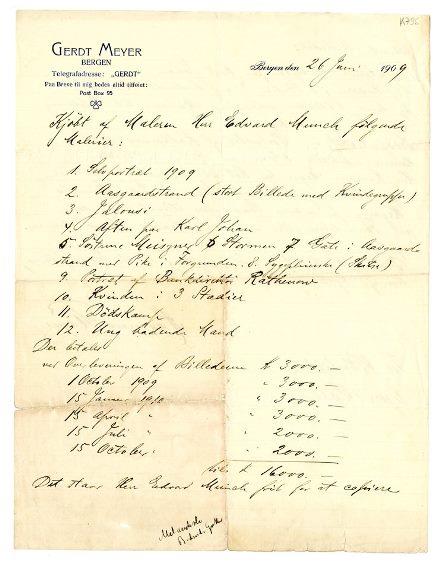 K756
GERDT MEYER
BERGEN
Telegrafadresse: „GERDT"
Paa Breve til mig bedes altid tilføiet:
Post Box 95
Bergen den 26 Juni 1909
Kjöbt af Maleren Herr Edvard Munch følgende
Malerier:
1. Selvportræt 1909
2. Aasgaardstrand (stort Billede med Kvindegruppe)
3. Jalousi
4. Aften paa Karl Johan
5. Meissner 6 Stormen 7 Gate i Aasgaard
strand med Pike i Forgrunden. 8.
9. Portræt af Bankdirektör Rathenow
10. Kvinden i 3 Stadier
11. Dödskamp
12. Ung badende Mand
Der betales
ved Overleveringen af Billederne k 3000.—
1 October 1909 " 3000.—
15 Januar 1910 " 3000.—
15 April " " 3000.—
15 Juli " " 2000.—
15 October " " 2000.—
16000.—
Det staar Herr Edvard Munch frit for at copiere